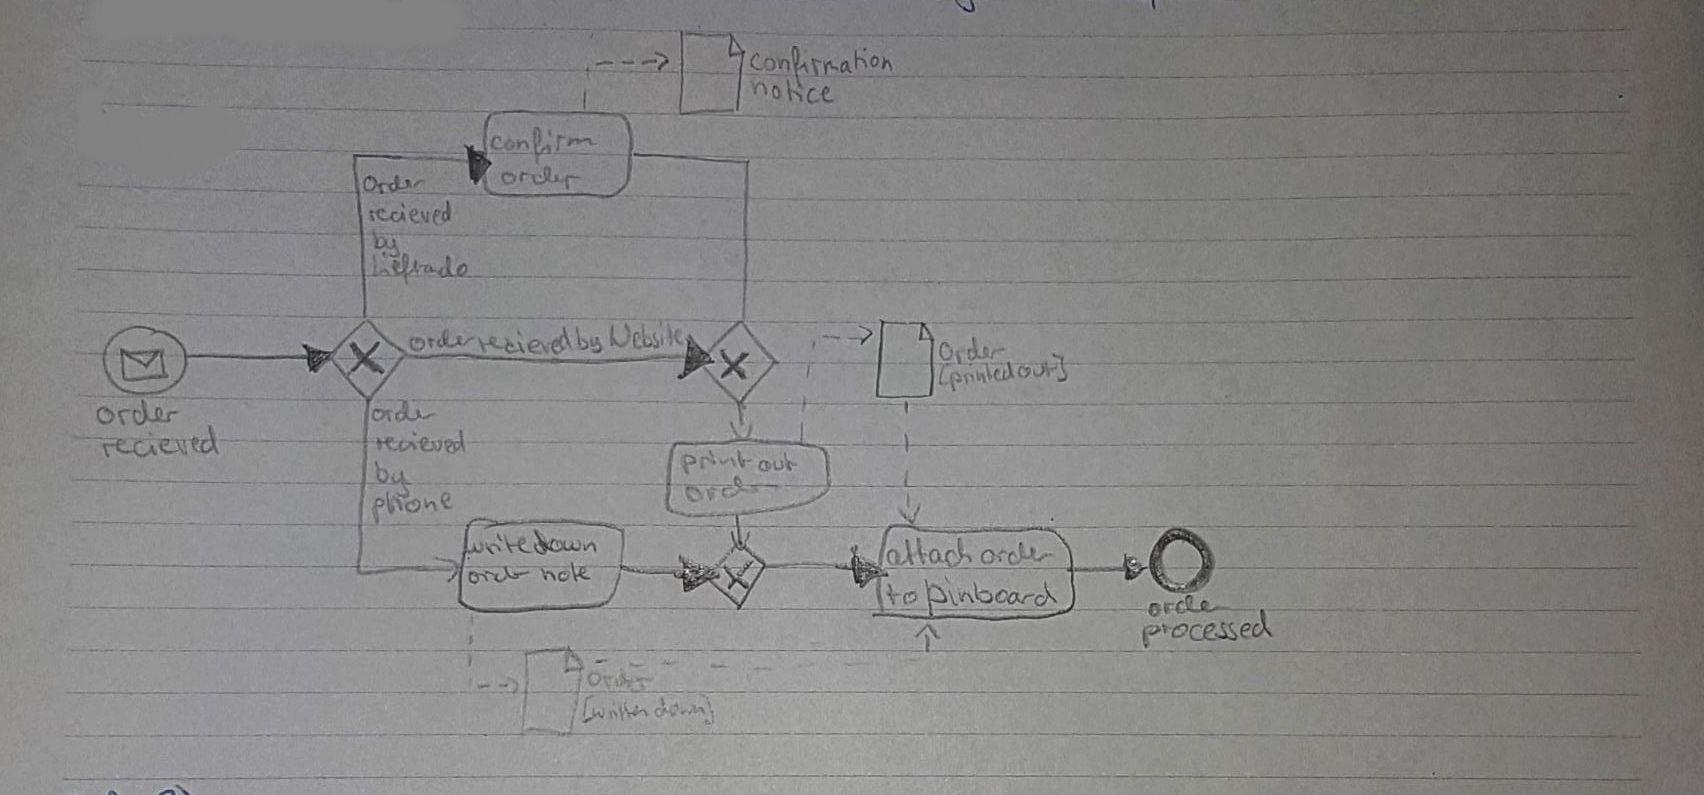 confirmation
notice
confirm
order
Order
recieved
by
order recieved by Website
order
recieved
Order
[printed out]
order
recieved
by
phone
print out
order
write down
order note
attach order
to pinboard
order
processed
Order
[written down]